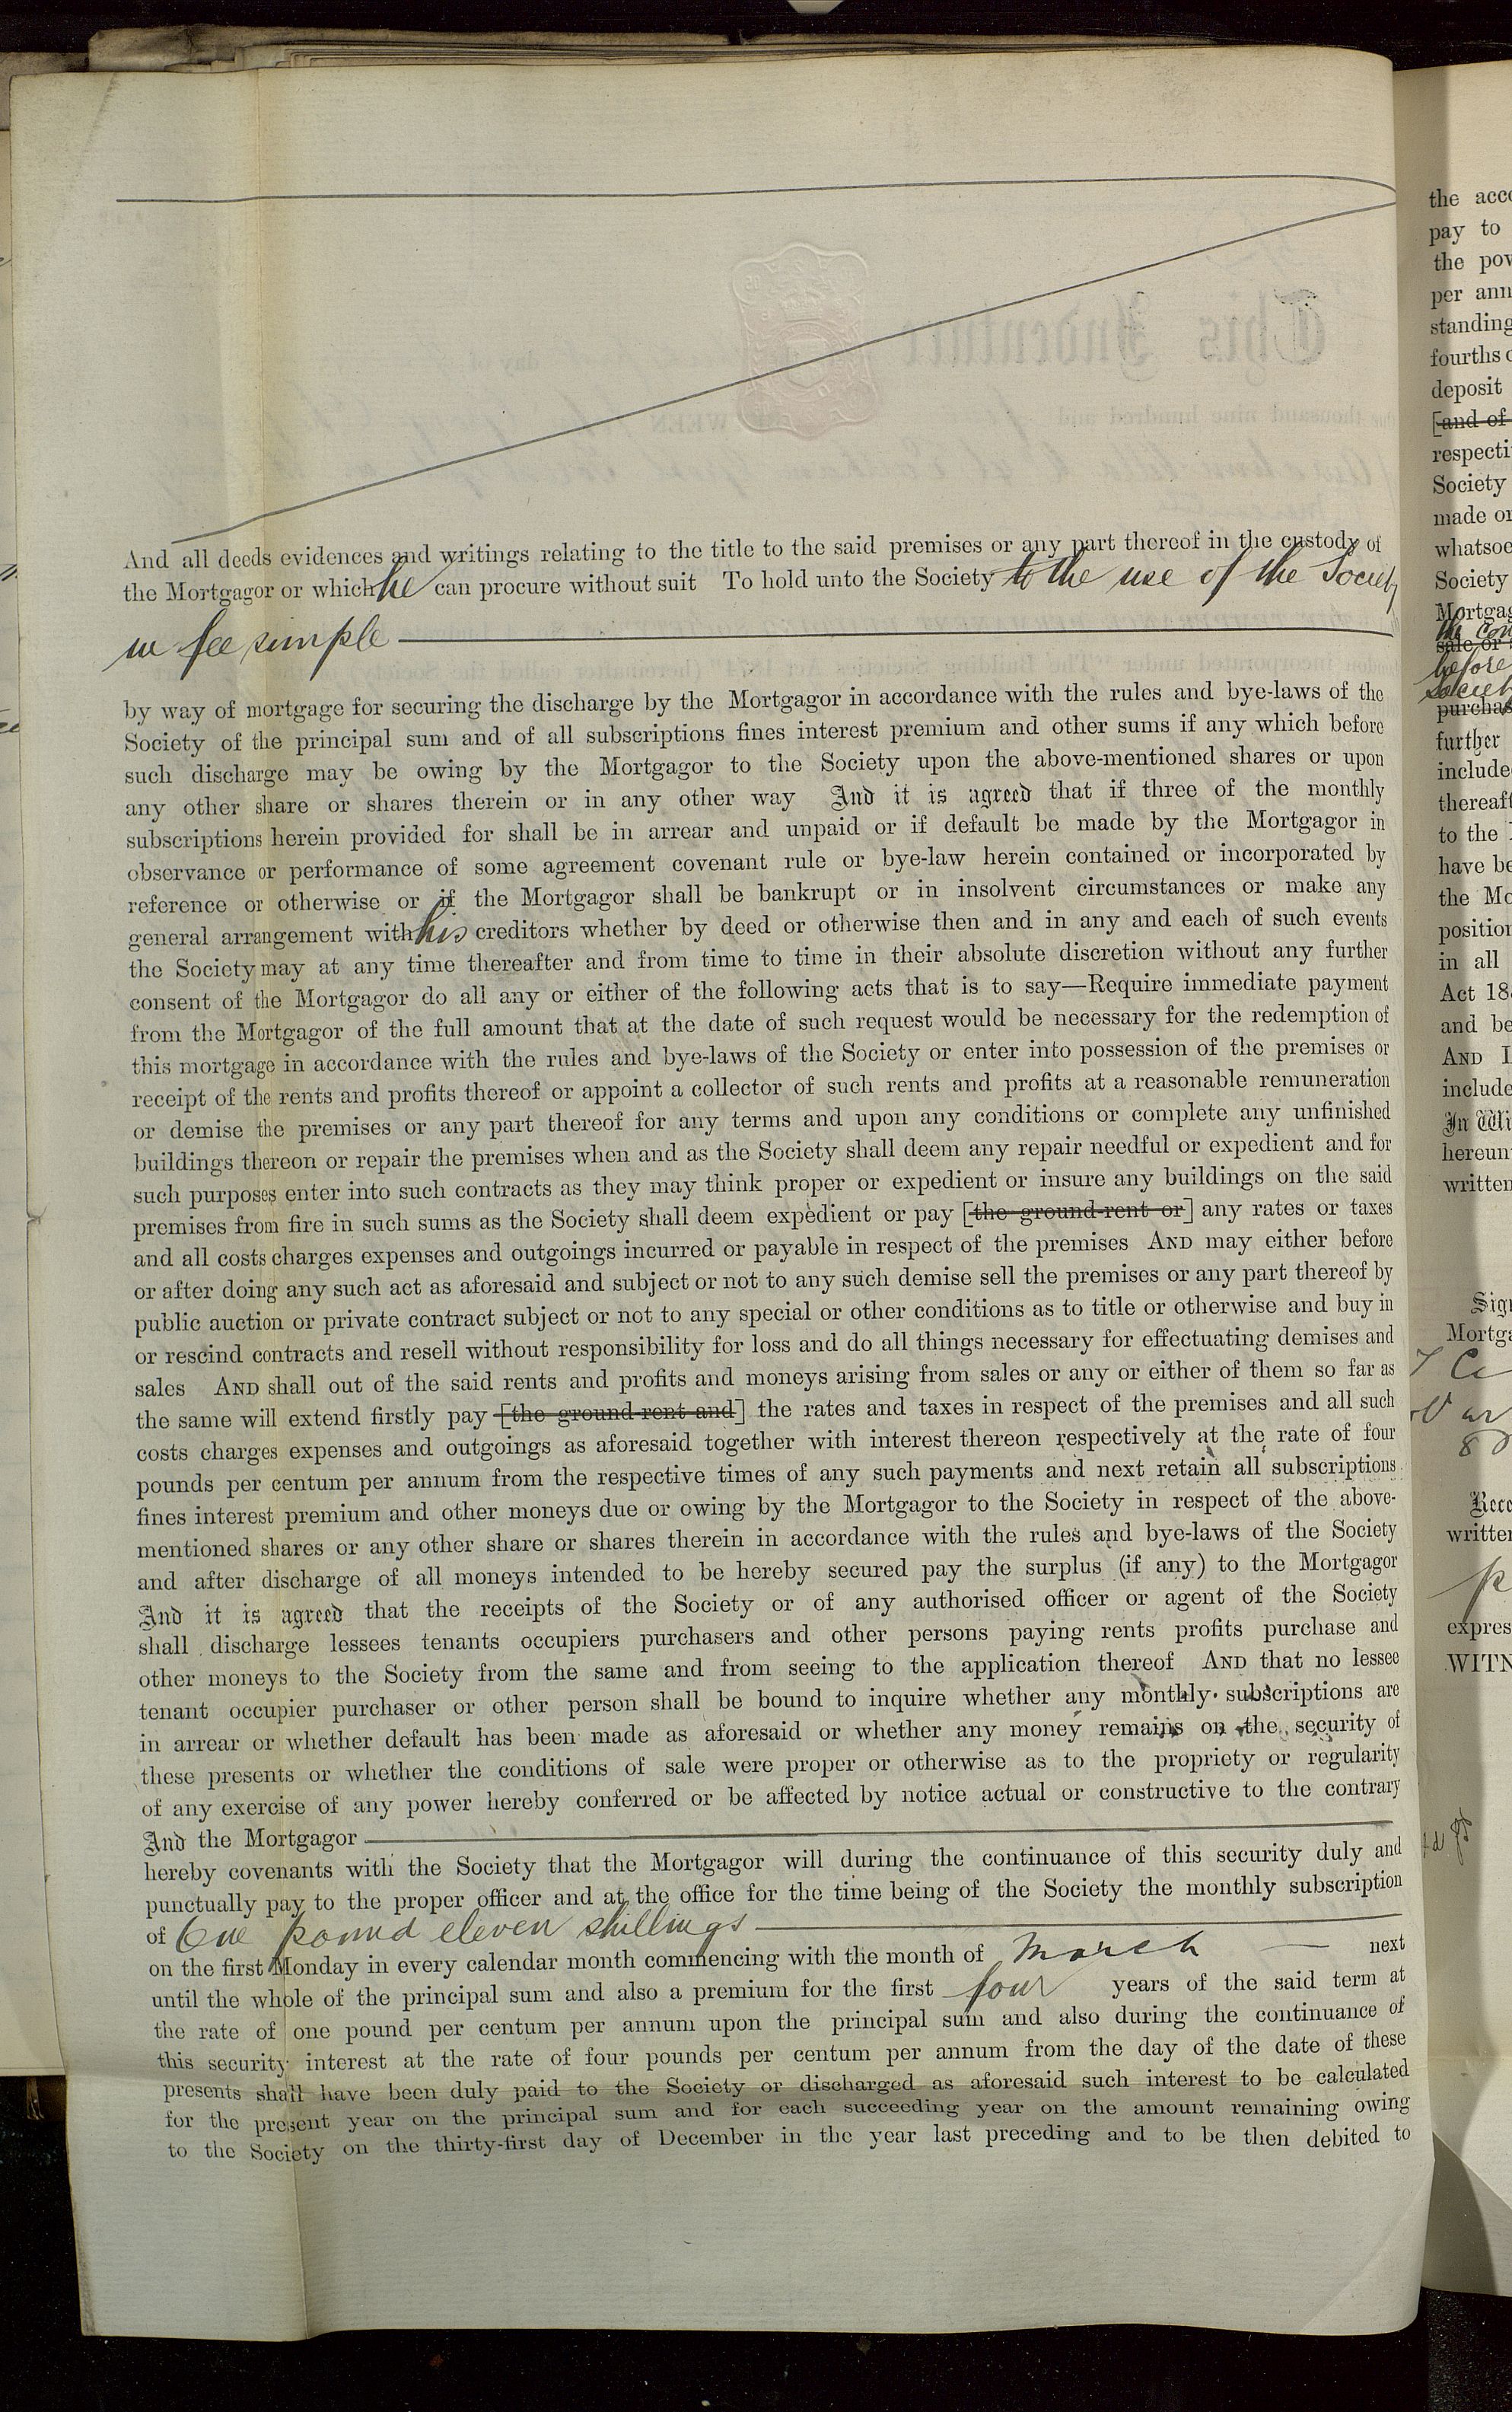 And all deeds evidences and writings relating to the title to the said premises or any part thereof in the custody of
the Mortgagor or which he can procure without suit To hold unto the Society to the use of the Society
in fee simple
by way of mortgage for securing the discharge by the Mortgagor in accordance with the rules and bye-laws of the
Society of the principal sum and of all subscriptions fines interest premium and other sums if any which before
such discharge may be owing by the Mortgagor to the Society upon the above-mentioned shares or upon
any other share or shares therein or in any other way And it is agreed that if three of the monthly
subscriptions herein provided for shall be in arrear and unpaid or if default be made by the Mortgagor in
observance or performance of some agreement covenant rule or bye-law herein contained or incorporated by
reference or otherwise or if the Mortgagor shall be bankrupt or in insolvent circumstances or make any
general arrangement with his creditors whether by deed or otherwise then and in any and each of such events
the Society may at any time thereafter and from time to time in their absolute discretion without any further
consent of the Mortgagor do all any or either of the following acts that is to say—Require immediate payment
from the Mortgagor of the full amount that at the date of such request would be necessary for the redemption of
this mortgage in accordance with the rules and bye-laws of the Society or enter into possession of the premises or
receipt of the rents and profits thereof or appoint a collector of such rents and profits at a reasonable remuneration
or demise the premises or any part thereof for any terms and upon any conditions or complete any unfinished
buildings thereon or repair the premises when and as the Society shall deem any repair needful or expedient and for
such purposes enter into such contracts as they may think proper or expedient or insure any buildings on the said
premises from fire in such sums as the Society shall deem expedient or pay [the ground-rent or] any rates or taxes
and all costs charges expenses and outgoings incurred or payable in respect of the premises AND may either before
or after doing any such act as aforesaid and subject or not to any such demise sell the premises or any part thereof by
public auction or private contract subject or not to any special or other conditions as to title or otherwise and buy in
or rescind contracts and resell without responsibility for loss and do all things necessary for effectuating demises and
sales AND shall out of the said rents and profits and moneys arising from sales or any or either of them so far as
the same will extend firstly pay [the ground-rent and] the rates and taxes in respect of the premises and all such
costs charges expenses and outgoings as aforesaid together with interest thereon respectively at the rate of four
pounds per centum per annum from the respective times of any such payments and next retain all subscriptions
fines interest premium and other moneys due or owing by the Mortgagor to the Society in respect of the above-
mentioned shares or any other share or shares therein in accordance with the rules and bye-laws of the Society
and after discharge of all moneys intended to be hereby secured pay the surplus (if any) to the Mortgagor
And it is agreed that the receipts of the Society or of any authorised officer or agent of the Society
shall discharge lessees tenants occupiers purchasers and other persons paying rents profits purchase and
other moneys to the Society from the same and from seeing to the application thereof AND that no lessee
tenant occupier purchaser or other person shall be bound to inquire whether any monthly subscriptions are
in arrear or whether default has been made as aforesaid or whether any money remains on the security of
these presents or whether the conditions of sale were proper or otherwise as to the propriety or regularity
of any exercise of any power hereby conferred or be affected by notice actual or constructive to the contrary
And the Mortgagor
hereby covenants with the Society that the Mortgagor will during the continuance of this security duly and
punctually pay to the proper officer and at the office for the time being of the Society the monthly subscription
of One pound eleven shillings
on the first Monday in every calendar month commencing with the month of March next
until the whole of the principal sum and also a premium for the first four years of the said term at
the rate of one pound per centum per annum upon the principal sum and also during the continuance of
this security interest at the rate of four pounds per centum per annum from the day of the date of these
presents shall have been duly paid to the Society or discharged as aforesaid such interest to be calculated
for the present year on the principal sum and for each succeeding year on the amount remaining owing
to the Society on the thirty-first day of December in the year last preceding and to be then debited to
the
pay to
the
per
standing
fourths
deposit
[and of
Society
made
Society
the
before
further
thereaft
to the
have
the
in all
Act
and
AND
In
written